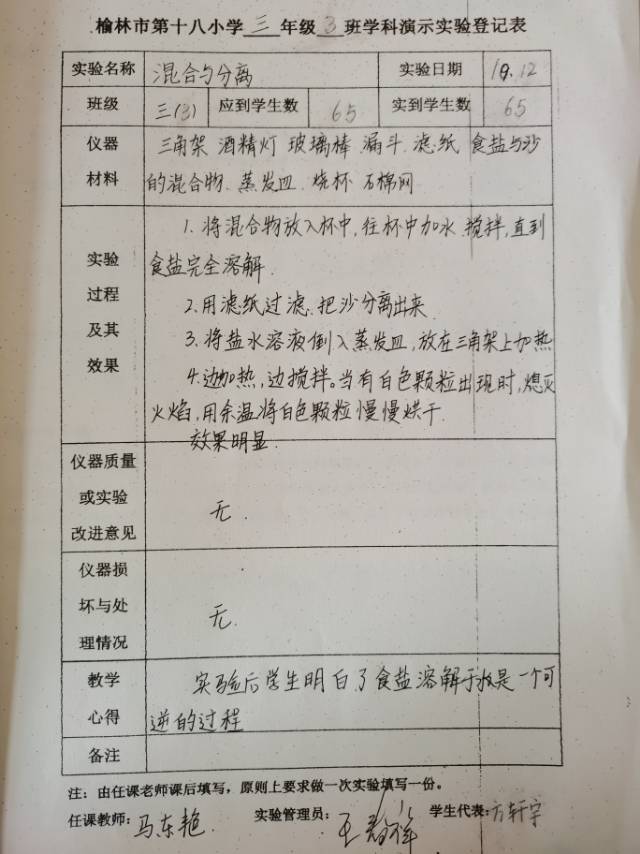 榆林市第十八小学三年级3班学科演示实验登记表
实验名称 混合与分离 实验日期 10.12
班级 三(3) 应到学生数 65 实到学生数 65
仪器材料
三角架 酒精灯 玻璃棒 漏斗. 滤纸 食盐与沙
的混合物. 蒸发皿. 烧杯 石棉网
实验过程及其效果
1. 将混合物放入杯中,往杯中加水.搅拌,直到
食盐完全溶解.
2.用滤纸过滤.把沙分离出来
3.将盐水溶液倒入蒸发皿,放在三角架上加热
4.边加热,边搅拌。当有白色颗粒出现时,熄灭
火焰,用余温将白色颗粒慢慢烘干.
效果明显.
仪器质量或实验改进意见
无.
仪器损坏与处理情况
无.
教学心得
实验后学生明白了食盐溶解于水是一个可
逆的过程
备注
注:由任课老师课后填写,原则上要求做一次实验填写一份。
任课教师:马东艳. 实验管理员: 学生代表:方轩宇